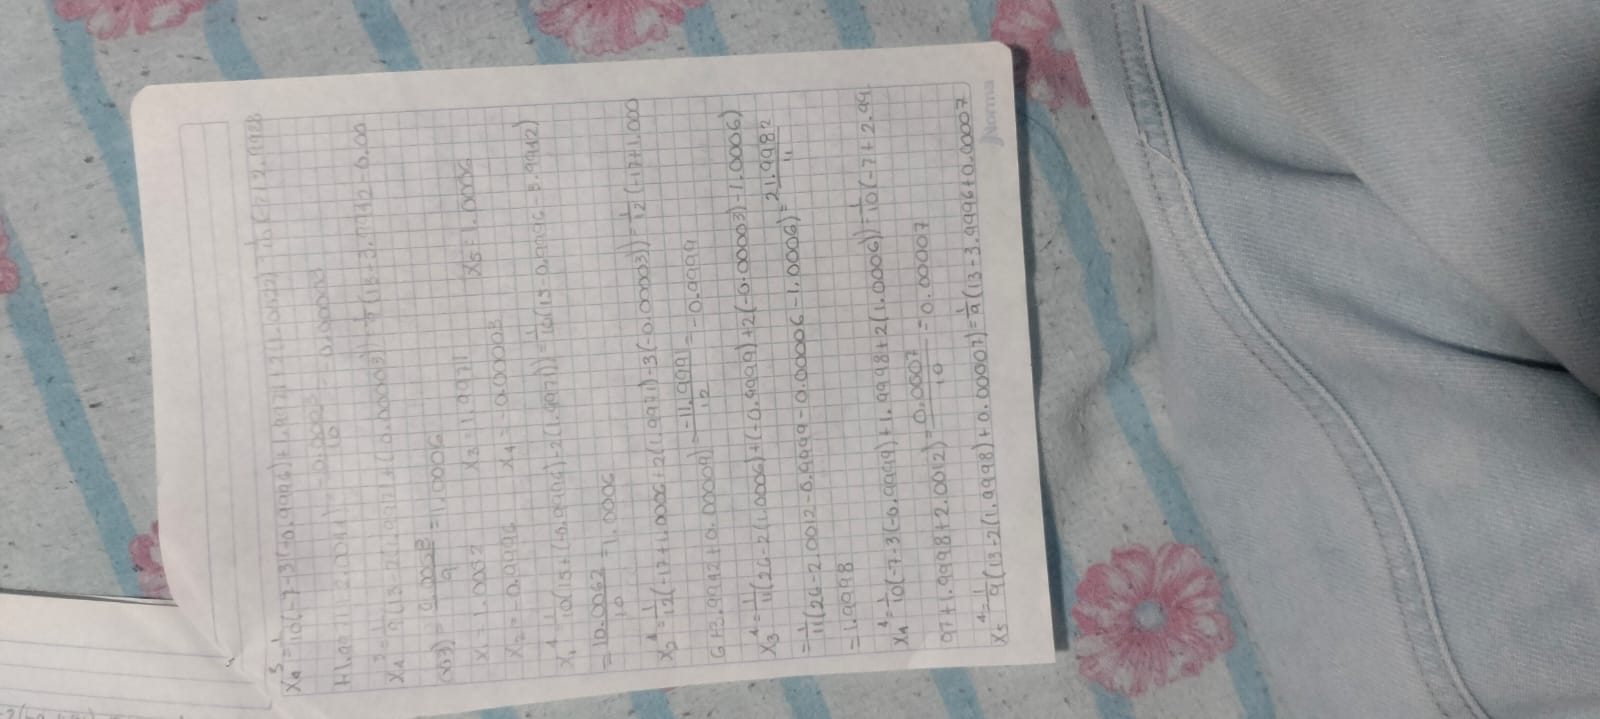 x₄³=1/10(-7-3(-0.9996)+1.9971+2(1.0022)=1/10(-7+2.9988
+1.9971+2.0044)=-0.0003/10=-0.00003
=1/9(13-2(1.9971)+(0.00003))=1/9(13-3.9942-0.00
003)=9.0058/9=1.0006
x=1.0062 x₃=1.9971 x₅=1.0006
x₂=-0.9996 x₄=-0.00003
x₁⁴=1/10(15+(-0.9996)-2(1.9971))=1/10(15-0.9996-3.9942)
=10.0062/10=1.0006
x₂⁴=1/12(-17+1.0006+2(1.9971)-3(-0.00003))=1/12(-17+1.00
6+3.9942+0.00009)=-11.9991/12=-0.9999
x₃⁴=1/11(26-2(1.0006)+(-0.9999)+2(-0.00003)-1.0006)
=1/11(26-2.0012-0.9999-0.00006-1.0006)=21.9982/11
=1.9998
x₄⁴=1/10(-7-3(-0.9999)+1.9998+2(1.0006))=1/10(-7+2.99
97+1.9998+2.0012)=0.0007/10=0.00007
x₅⁴=1/9(13-2(1.9998)+0.00007)=1/9(13-3.9996+0.00007
norma